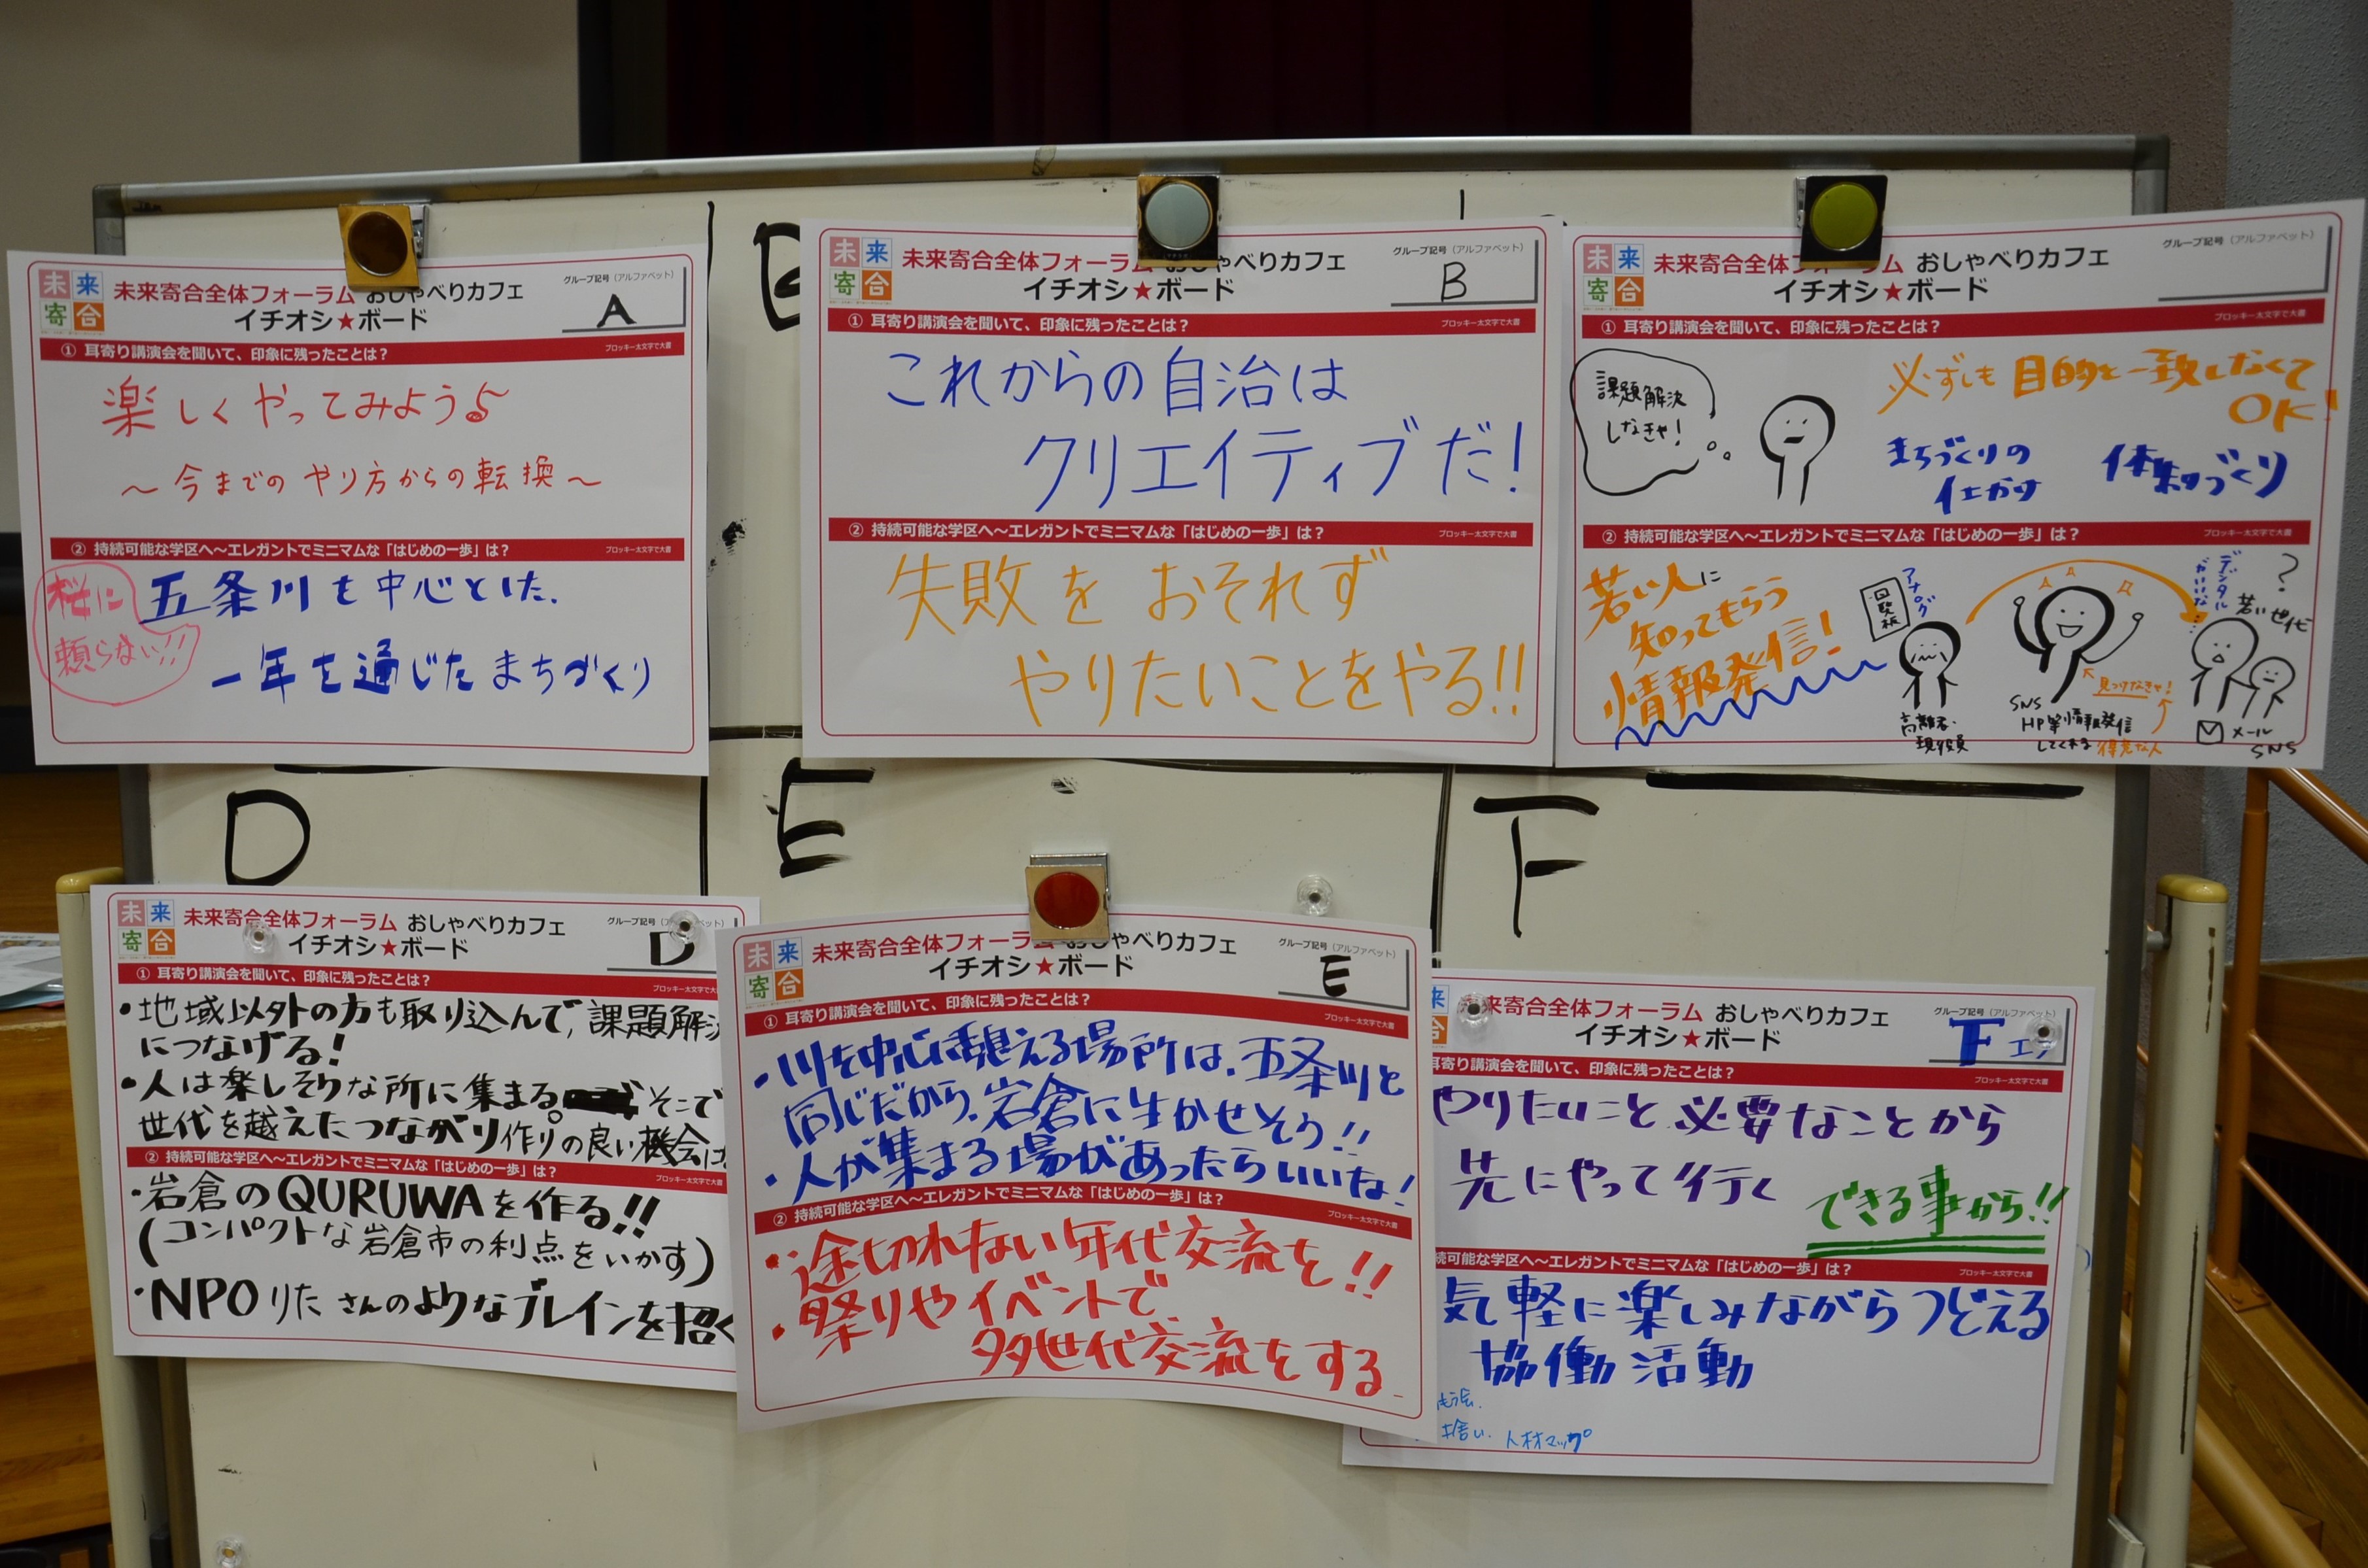 A
未来寄合
未来寄合全体フォーラム おしゃべりカフェ
イチオシ★ボード
グループ記号(アルファベット)
① 耳寄り講演会を聞いて、印象に残ったことは?
ブロッキー太文字で大書
楽しくやってみよう♪
～今までのやり方からの転換～
② 持続可能な学区へ～エレガントでミニマムな「はじめの一歩」は?
ブロッキー太文字で大書
桜に
頼らない!!
五条川も中心とした.
一年を通じたまちづくり
B
未来寄合
未来寄合全体フォーラム おしゃべりカフェ
イチオシ★ボード
グループ記号(アルファベット)
B
① 耳寄り講演会を聞いて、印象に残ったことは?
ブロッキー太文字で大書
これからの自治は
クリエイティブだ!
② 持続可能な学区へ～エレガントでミニマムな「はじめの一歩」は?
ブロッキー太文字で大書
失敗をおそれず
やりたいことをやる!!
未来寄合
未来寄合全体フォーラム おしゃべりカフェ
イチオシ★ボード
グループ記号(アルファベット)
① 耳寄り講演会を聞いて、印象に残ったことは?
ブロッキー太文字で大書
課題解決
しなきゃ!
必ずしも目的と一致しなくて
OK!
まちづくりの
仕かけ
体制づくり
② 持続可能な学区へ～エレガントでミニマムな「はじめの一歩」は?
ブロッキー太文字で大書
若い人に
知ってもらう
情報発信!
アナログ
回覧板
高齢者・
現役員
SNS
HP等情報発信
してくれる得意な人
見つけなきゃ!
デジタル
がいいな…
?
若い世代
メール
SNS
D
E
F
未来寄合
未来寄合全体フォーラム おしゃべりカフェ
イチオシ★ボード
グループ記号
D
① 耳寄り講演会を聞いて、印象に残ったことは?
・地域以外の方も取り込んで,課題解決
につなげる!
・人は楽しそうな所に集まる。そこで
世代を越えたつながり作りの良い機会に
② 持続可能な学区へ～エレガントでミニマムな「はじめの一歩」は?
・岩倉のQURUWAを作る!!
(コンパクトな岩倉市の利点をいかす)
・NPOりたさんのようなブレインを招く
未来寄合
未来寄合全体フォーラム おしゃべりカフェ
イチオシ★ボード
グループ記号(アルファベット)
E
① 耳寄り講演会を聞いて、印象に残ったことは?
ブロッキー太文字で大書
・川を中心に憩える場所は、五条川と
同じだから、岩倉に生かせそう!!
・人が集まる場があったらいいな!
② 持続可能な学区へ～エレガントでミニマムな「はじめの一歩」は?
ブロッキー太文字で大書
・途切れない年代交流を!!
・祭りやイベントで
多世代交流をする
来
合
未来寄合全体フォーラム おしゃべりカフェ
イチオシ★ボード
グループ記号(アルファベット)
F
耳寄り講演会を聞いて、印象に残ったことは?
ブロッキー太文字で大書
やりたいこと 必要なことから
先にやって行く
できる事から!!
続可能な学区へ～エレガントでミニマムな「はじめの一歩」は?
ブロッキー太文字で大書
気軽に楽しみながらつどえる
協働活動
拾い. 人材マップ